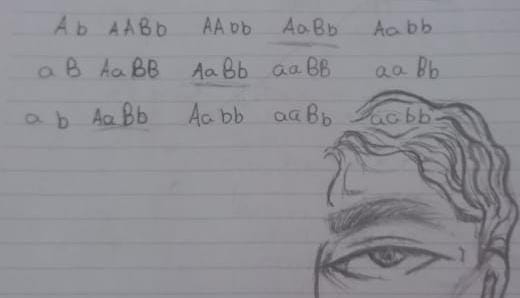 Ab AABb AAbb AaBb Aabb
aB AaBB AaBb aaBB aaBb
ab AaBb Aabb aaBb aabb